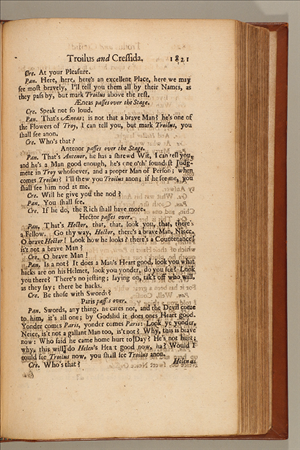 Troilus and Cressida. 1821
Cre. At your Pleasure.
Pan. Here, here, here's an excellent Place, here we may
see most bravely, I'll tell you them all by their Names, as
they pass by, but mark Troilus above the rest.
Æneas passes over the Stage.
Cre. Speak not so loud.
Pan. That's Æneas; is not that a brave Man? he's one of
the Flowers of Troy, I can tell you, but mark Troilus, you
shall see anon.
Cre. Who's that?
Antenor passes over the Stage.
Pan. That's Antenor, he has a shrewd Wit, I can tell you,
and he's a Man good enough, he's one o'th' soundest Judg-
ments in Troy whosoever, and a proper Man of Person; when
comes Troilus? I'll shew you Troilus anon; if he see me, you
shall see him nod at me.
Cre. Will he give you the nod?
Pan. You shall see.
Cre. If he do, the Rich shall have more.
Hector passes over.
Pan. That's Hector, that, that, look you, that, there's
a Fellow. Go thy way, Hector, there's a brave Man, Niece,
O brave Hector! Look how he looks! there's a Countenance!
is't not a brave Man?
Cre. O brave Man!
Pan. Is a not? It does a Man's Heart good, look you what
hacks are on his Helmet, look you yonder, do you see? Look
you there? There's no jesting; laying on, tak't off who will,
as they say; there be hacks.
Cre. Be those with Swords?
Paris passes over.
Pan. Swords, any thing, he cares not, and the Devil come
to him, it's all one; by Godslid it does ones Heart good.
Yonder comes Paris, yonder comes Paris: Look ye yonder,
Niece, is't not a gallant Man too, is't not? Why, this is brave
now: Who said he came home hurt to Day? He's not hurt;
why, this will do Helen's Heart good now, ha? Would I
could see Troilus now, you shall see Troilus anon.
Cre. Who's that?
Helenus